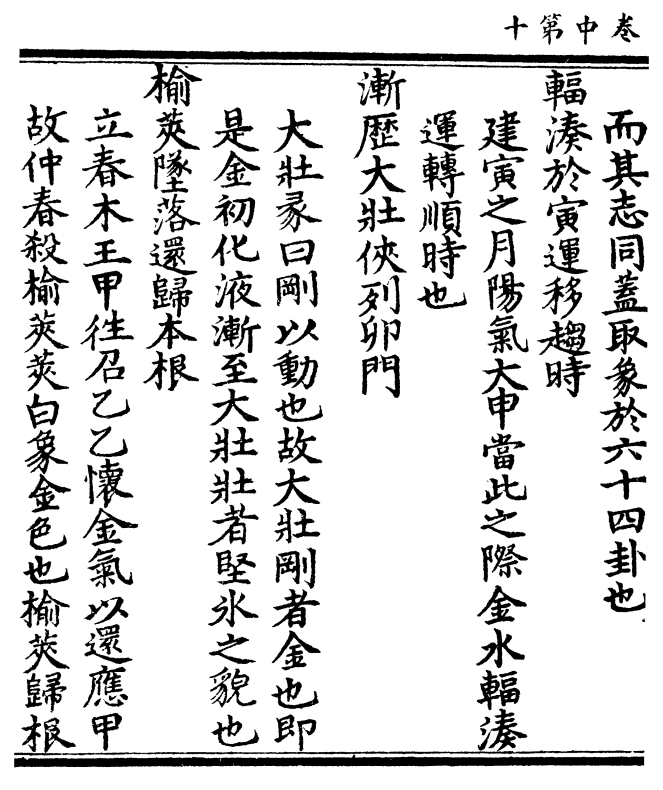 卷中第十
而其志同蓋取象於六十四卦也
輻湊於寅運移趨時
建寅之月陽氣大申當此之際金水輻湊
運轉順時也
漸歷大壯俠列卯門
大壯彖曰剛以動也故大壯剛者金也即
是金初化液漸至大壯壯者堅氷之貌也
榆莢墜落還歸本根
立春木王甲徃召乙乙懷金氣以還應甲
故仲春殺榆莢莢白象金色也榆莢歸根